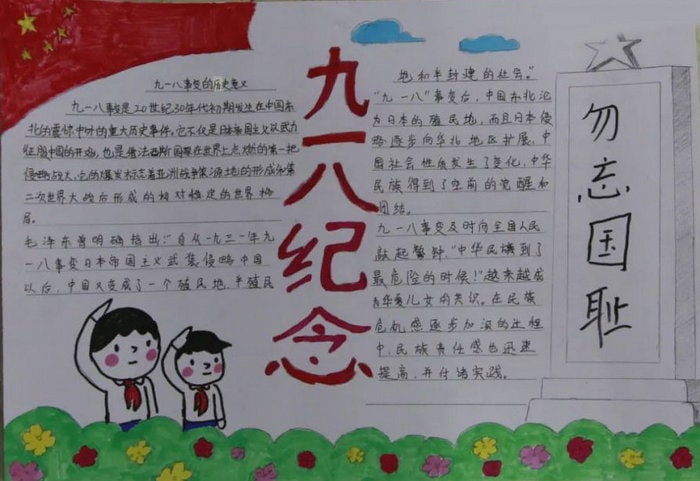 九一八事变的历史意义
九一八事变是20世纪30年代初期发生在中国东
北的震惊中外的重大历史事件,它不仅是日本帝国主义以武力
征服中国的开始,也是德法西斯国家在世界上点燃的第一把
侵略战火,它的爆发标志着亚洲战争策源地的形成和第
二次世界大战后形成的相对稳定的世界格
局。
毛泽东曾明确指出:"自从一九三一年九
一八事变日本帝国主义武装侵略中国
以后,中国又变成了一个殖民地、半殖民
九一八纪念
地和半封建的社会。"
"九一八"事变后,中国东北沦
为日本的殖民地,而且日本侵
略逐步向华北地区扩展,中
国社会性质发生了变化,中华
民族得到了空前的觉醒和
团结。
九一八事变及时向全国人民
敲起警钟,"中华民族到了
最危险的时候!"越来越成
为华夏儿女的共识。在民族
危机感逐步加深的过程
中,民族责任感也迅速
提高,并付诸实践。
勿忘国耻